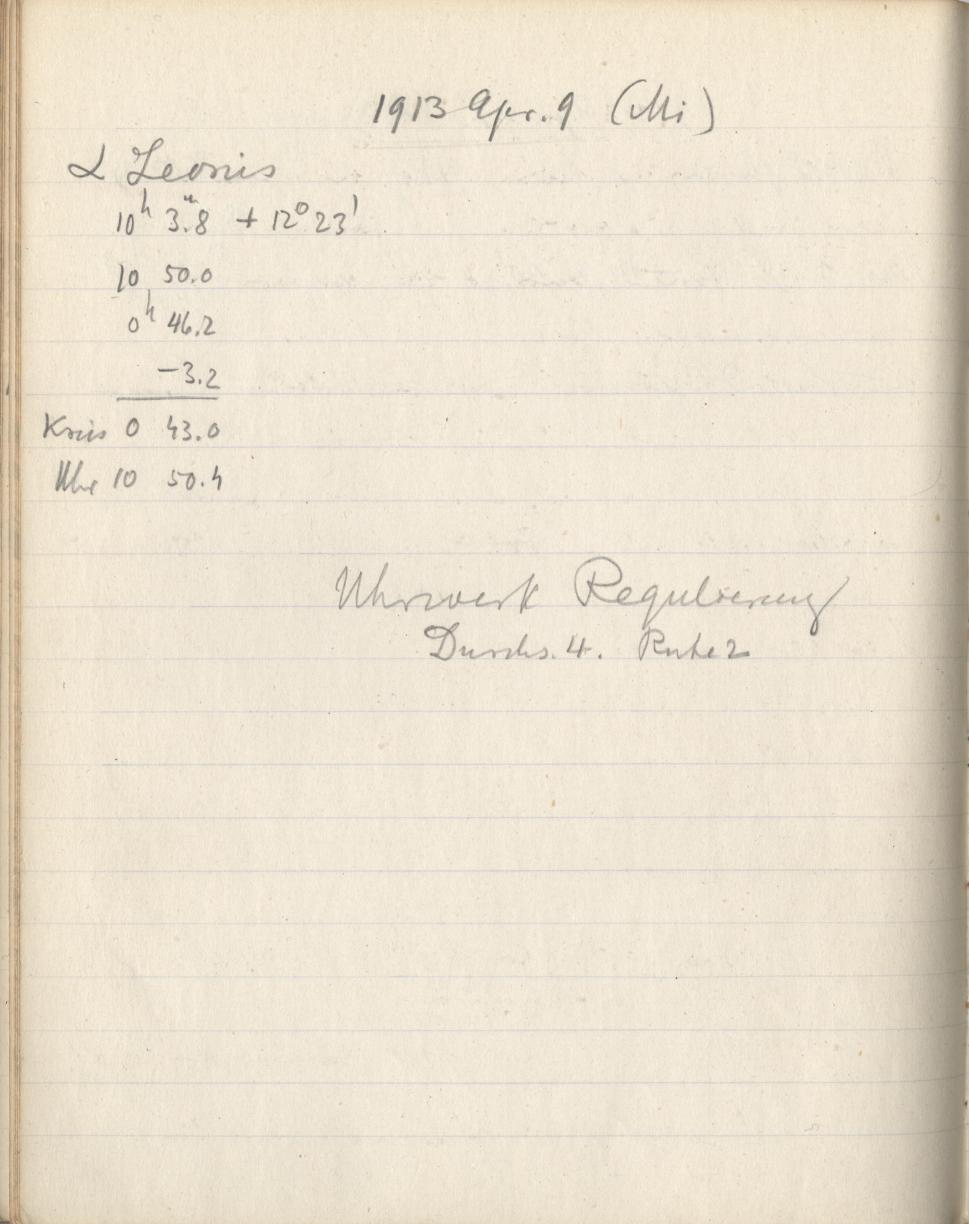 1913 Apr. 9 (Mi)
α Leonis
10ʰ 3.ᵐ8 + 12° 23'
10 50.0
0ʰ 46.2
-3.2
Kreis 0 43.0
Uhr 10 50.4
Uhrwerk Regulierung
Durchs. 4. Ruhe 2